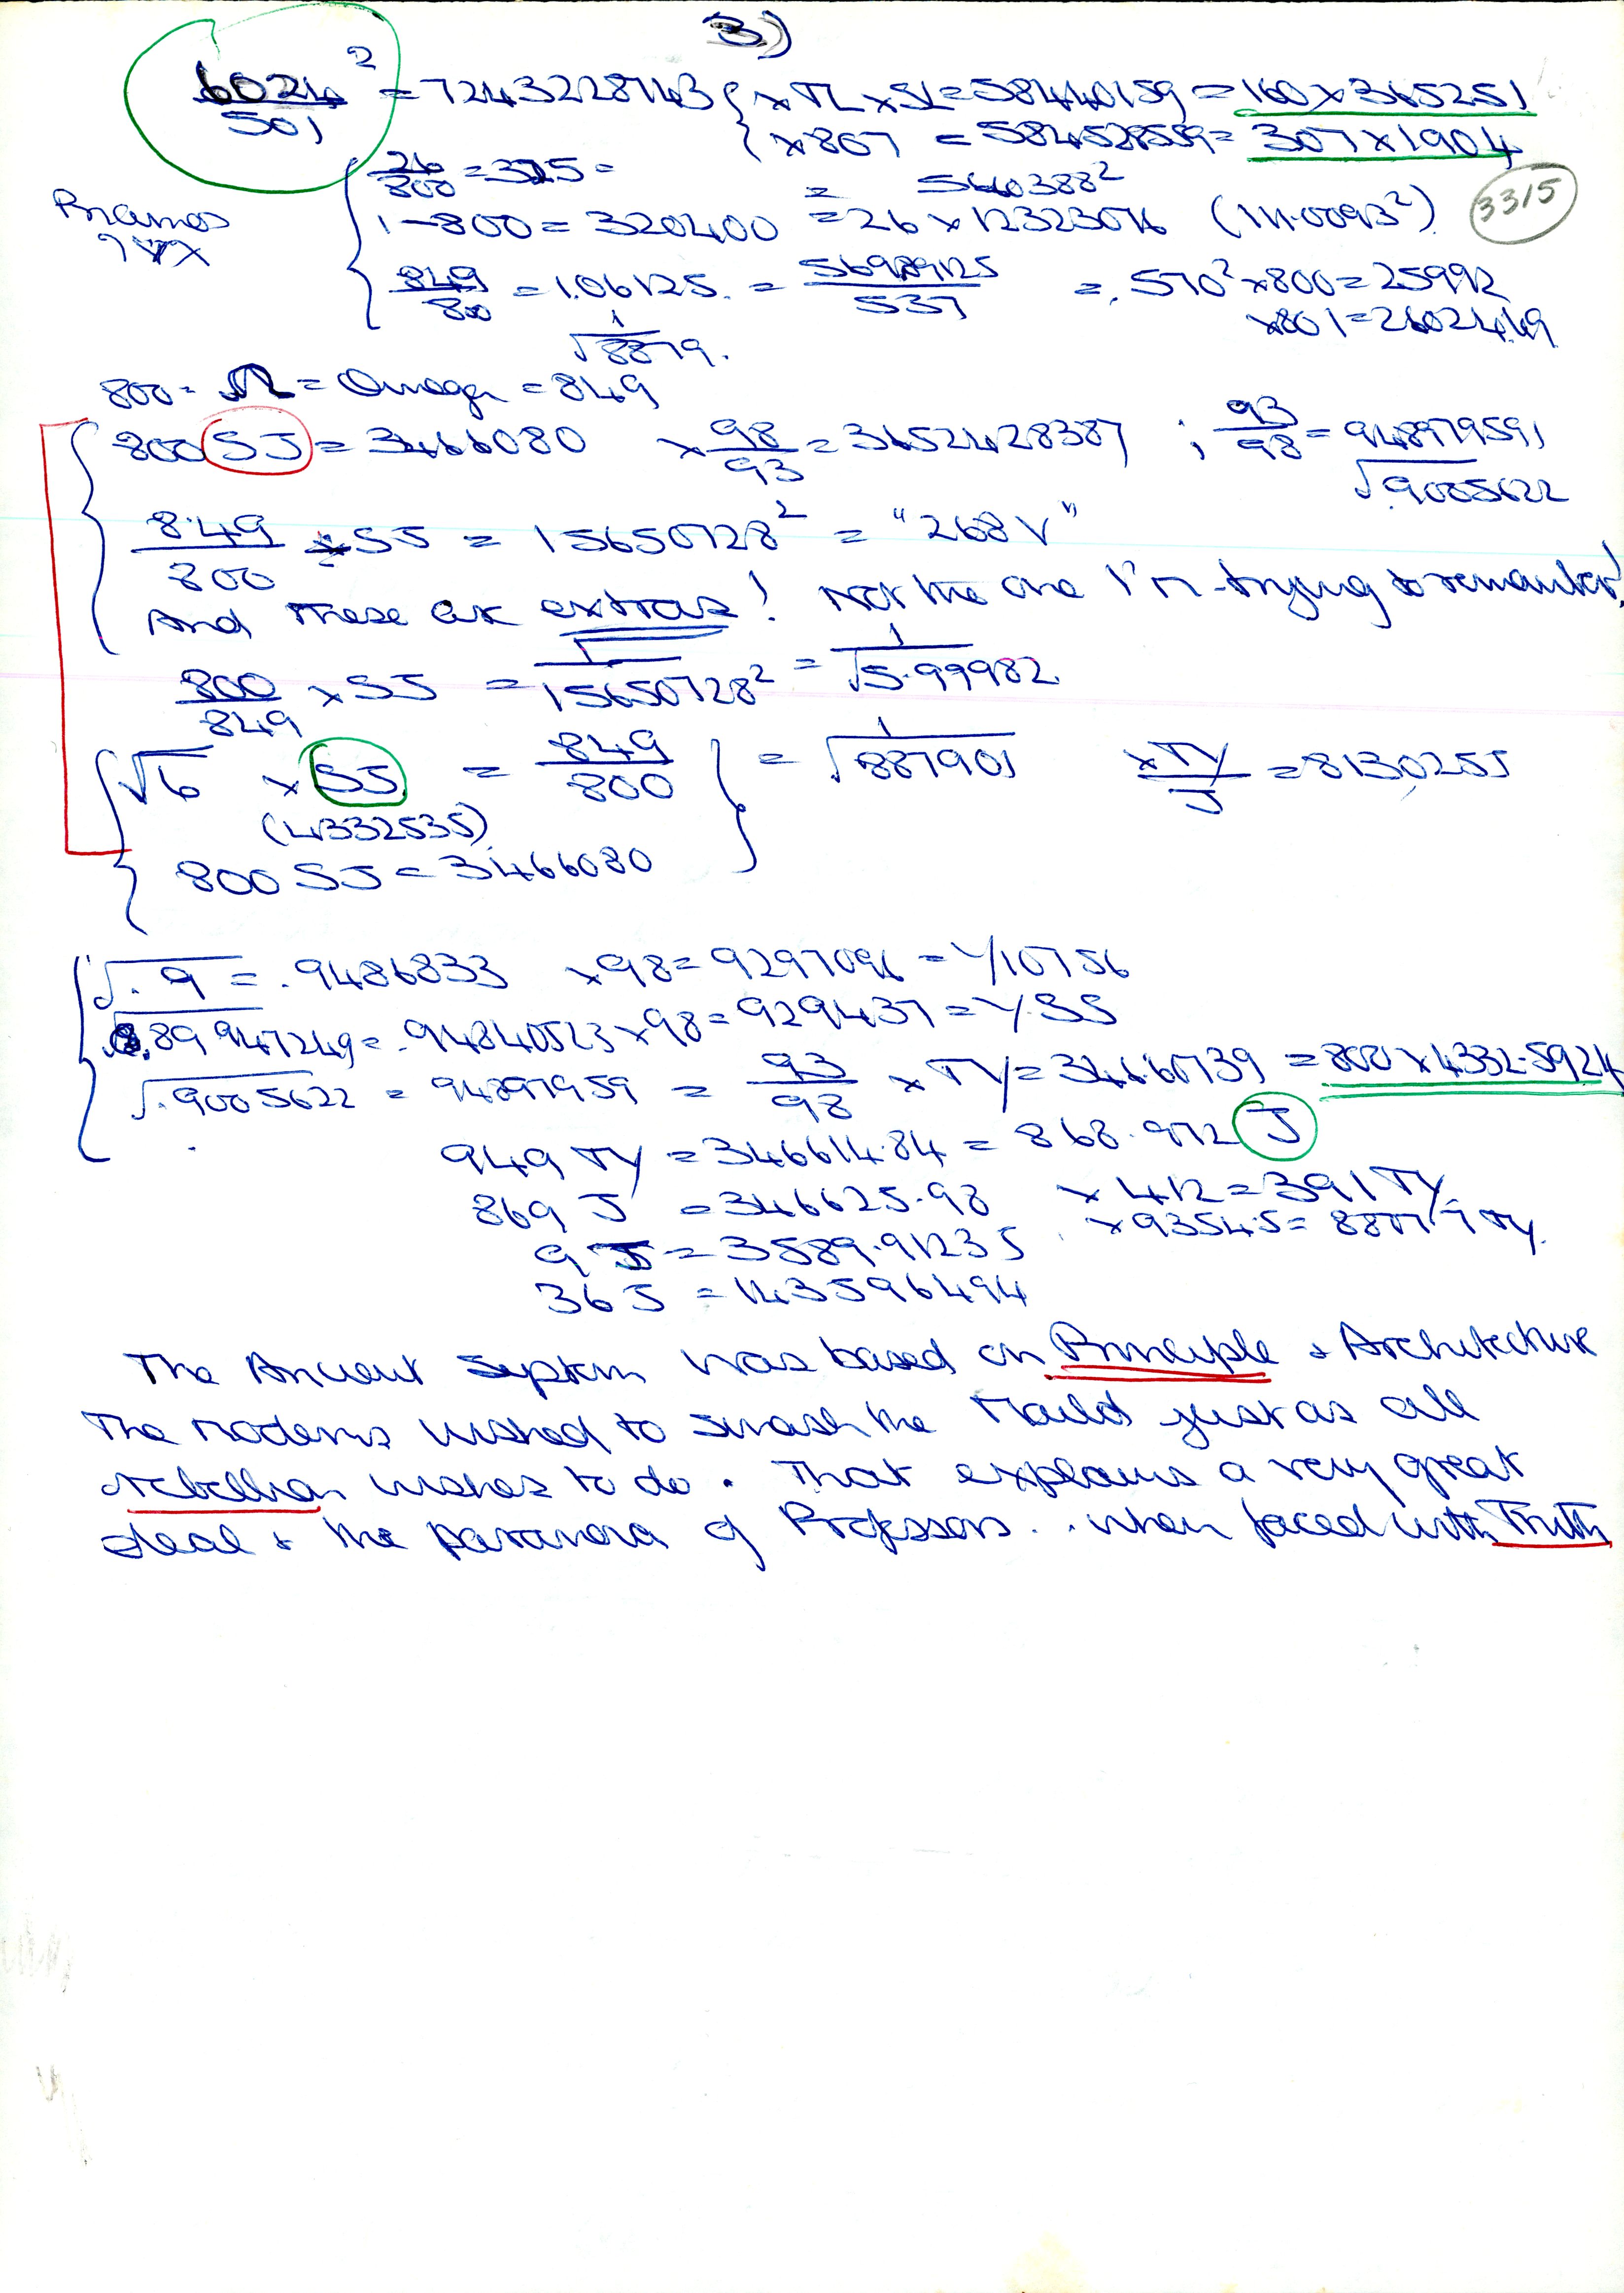 3)
6024² / 501 = 7243228743 { x TL x SL = 58440159 = 160 x 365251
{ x 807 = 584528559 = 307 x 1904
3315
26/800 = 325 = = 5660388²
1-800 = 320400 = 26 x 12323076 (111.0093²)
849/800 = 1.06125. = 56989125/537 = .570² x 800 = 25992
x 801 = 26024.49
1/√8879.
800 = Ω = Omega = 849
800 SJ = 3466080 x 98/93 = 3652428387 ; 93/98 = 948979591
√.9005622
8.49/800 ÷ SJ = 15650728² = "268V"
And these are extras! Not the one I'm trying to remember!
800/849 x SJ = 1/15650728² = 1/√5.99982
√6 x SJ = 849/800 } = 1/√887901 x TY/J = 8130255
(4332535)
800 SJ = 3466080
√.9 = .9486833 x 98 = 9297096 = 1/10756
.89947249 = .94840523 x 98 = 929437 = Y.SS
√.9005622 = 94897959 = 93/98 x TY = 34660739 = 800 x 4332.5924
949 TY = 346614.84 = 868.972 J
869 J = 346625.98 x 412 = 391 TY
9 J = 3589.91235 x 9354.5 = 8877.7 TY.
36 J = 143596494
The Ancient System was based on Principle & Architecture
The moderns wished to smash the Mould just as all
rebellion wishes to do. That explains a very great
deal & the paranoia of Professors.. when faced with Truth